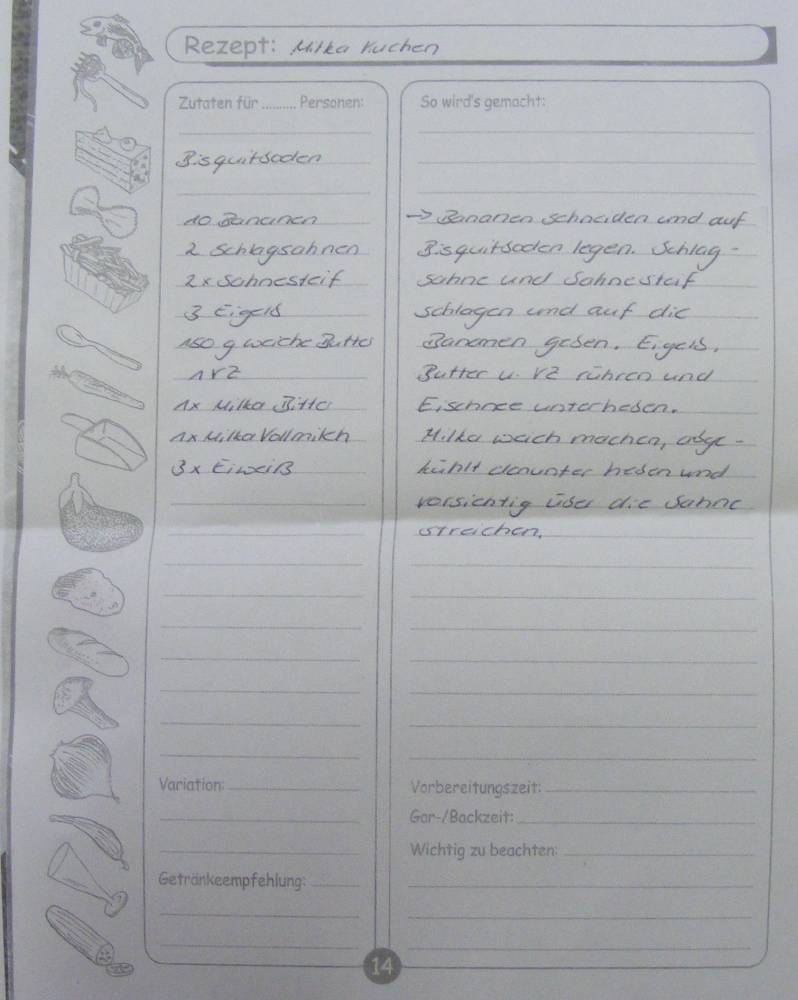 Rezept: Milka Kuchen
Zutaten für .......... Personen:
Bisquitboden
10 Bananen
2 Schlagsahnen
2 x Sahnesteif
3 Eigelb
150 g weiche Butter
1 VZ
1x Milka Bitter
1x Milka Vollmilch
3 x Eiweiß
Variation:
Getränkeempfehlung:
So wird's gemacht:
-> Bananen schneiden und auf
Bisquitboden legen. Schlag -
sahne und Sahnesteif
schlagen und auf die
Bananen geben. Eigelb,
Butter u. VZ rühren und
Eischnee unterheben.
Milka weich machen, abge -
kühlt darunter heben und
vorsichtig über die Sahne
streichen.
Vorbereitungszeit:
Gar-/Backzeit:
Wichtig zu beachten:
14